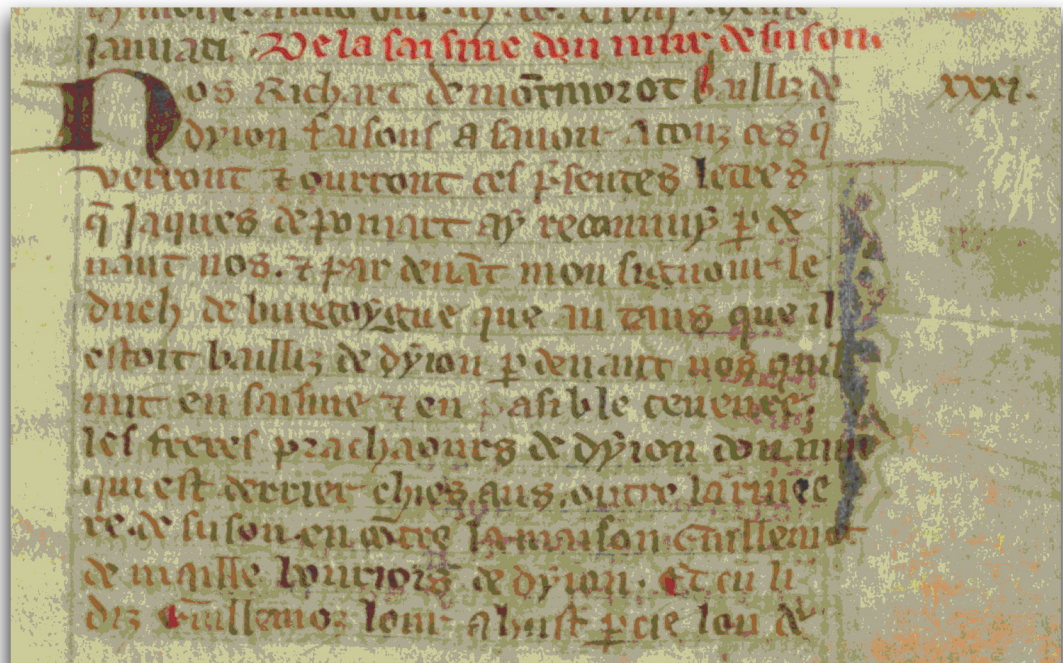 januari. De la saisine dou mur de suson.
Nos Richart de mōtmorot bailliz de
xxxi.
dyion faisons a savoir a touz ces q̄
verront ⁊ ourront ces p̄sentes letres
q̄ Jaques de pomart ay recomuiy ꝑ de
nant nos. ⁊ par denāt mon signour le
duch de burgoygne que au tans que il
estoit bailliz de dyion ꝑ denant nos quil
mit en saisine ⁊ en pasible teneure
les freres preachaours de dyion dou mur
qui est derrier chies aus outre la riuie
re de suson en cōtre la maison Guillemot
de maille borciois de dyion. Et cu li
diz Guillemoz lour ahust ꝑcie lou de